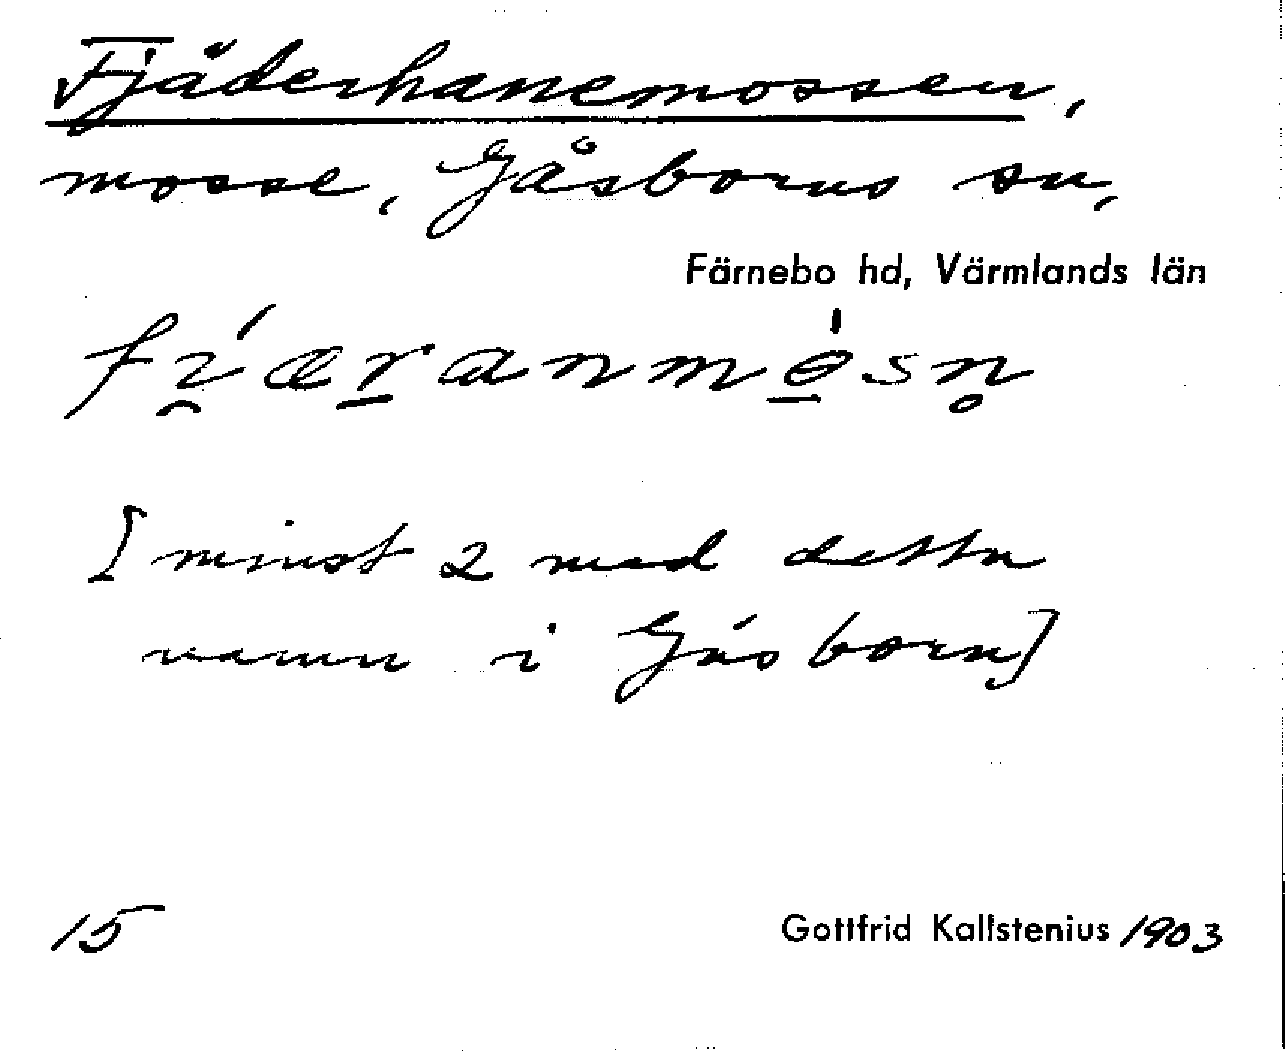 Fjäderhanemossen,
mosse, Gåsborns sn,
Färnebo hd, Värmlands län
fi̯ǽṟanmɵ̱́sn̥
[minst 2 med detta
namn i Gåsborn]
15 Gottfrid Kallstenius 1903